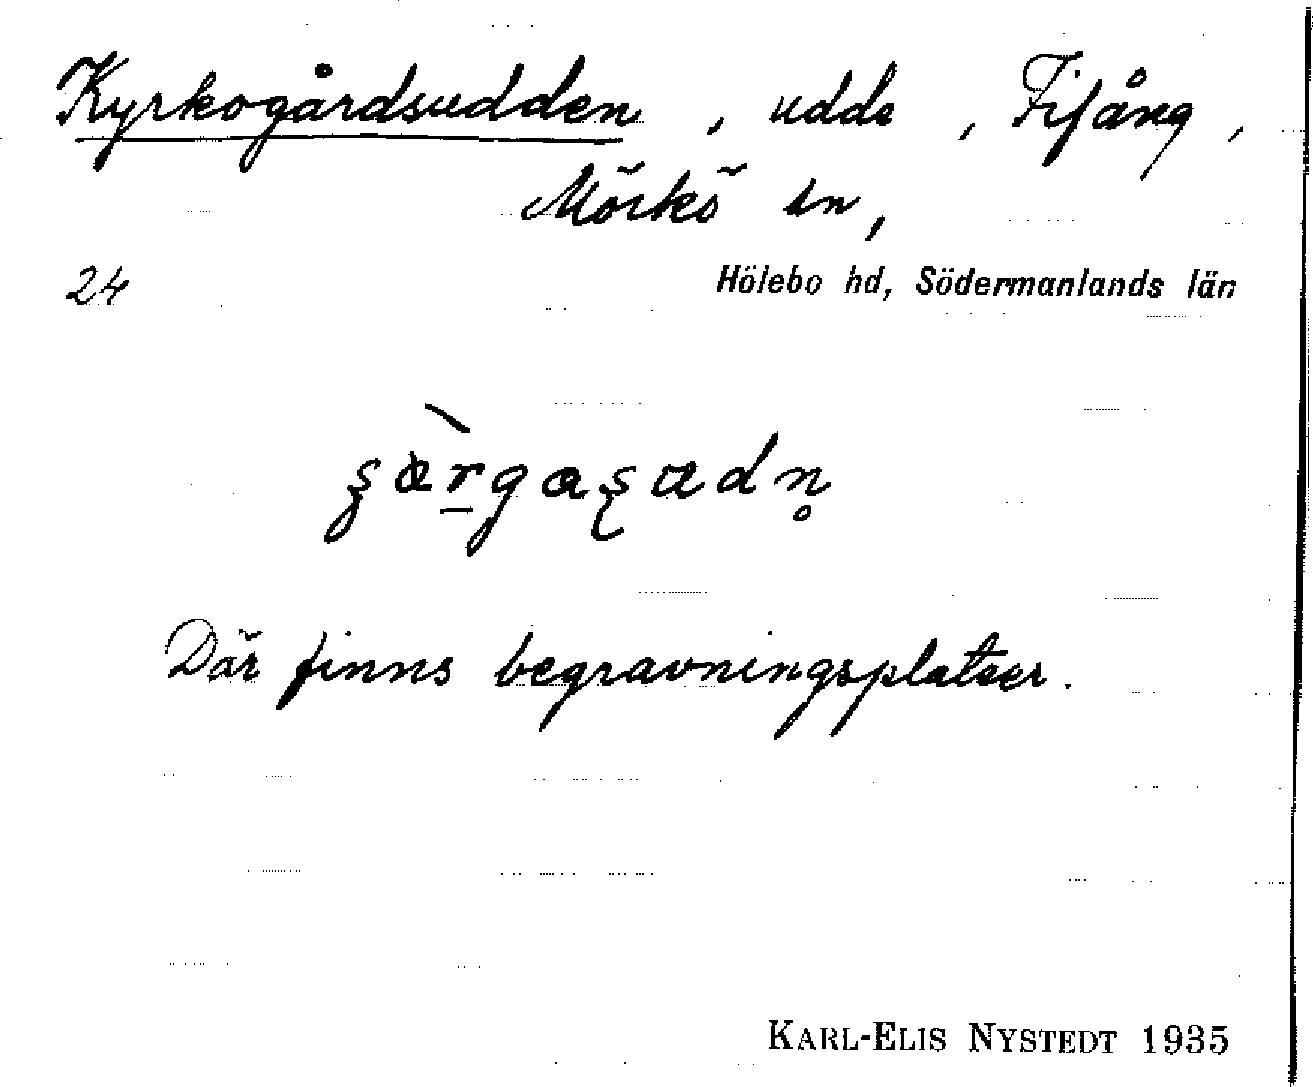 Kyrkogårdsudden, udde, Fifång,
Mörkö sn,
24 Hölebo hd, Södermanlands län
Där finns begravningsplatser.
KARL-ELIS NYSTEDT 1935